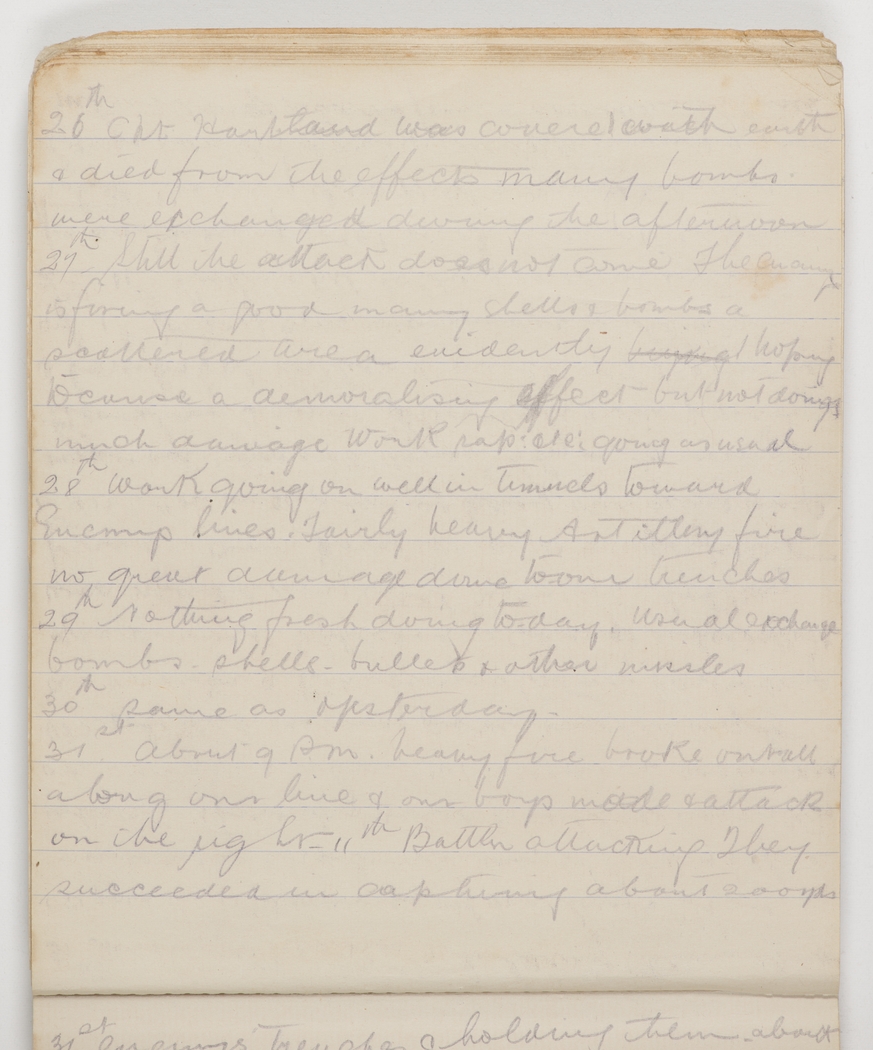 26th Cpt Hartland was covered with earth
& died from the effects many bombs.
were exchanged during the afternoon
27th. Still the attack does not come The enemy
is firing a good many shells & bombs a
scattered area evidently hoping
to cause a demoralising effect but not doing
much damage Work going as usual
28th Work going on well in tunnels toward
Enemys lines. Fairly heavy Artillery fire
no great damage done to our trenches
29th Nothing fresh doing to-day. Usual exchange
bombs - shells - bullets & other missles
30th same as yesterday -
31st. About 9 P.m. heavy fire broke out all
along our line & our boys made & attack
on the right - 11th Battln attacking They
succeeded in capturing about 200 yds
31st enemys Trenches & holding them about